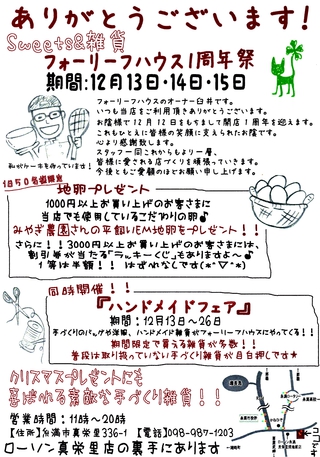 ありがとうございます！
Sweets&雑貨
フォーリーフハウス1周年祭
期間：12月13日・14日・15日
フォーリーフハウスのオーナー臼井です。
いつも当店をご利用頂きありがとうございます。
お陰様で12月12日をもちまして開店1周年を迎えます。
これもひとえに皆様の笑顔に支えられたお陰です。
心より感謝致します。
スタッフ一同これからもより一層、
皆様に愛される店づくりを頑張っていきます。
今後ともご愛顧のほどお願い申し上げます。
私がケーキを作っています！
1日50名様限定
地卵プレゼント
1000円以上お買い上げのお客さまに
当店でも使用しているこだわりの卵♪
みやぎ農園さんの平飼いEM地卵をプレゼント！！
さらに！！3000円以上お買い上げのお客さまには、
割引券が当たる『ラッキーくじ』もありますよ～♪
1等は半額！！ はずれなしです(*^▽^*)
同時開催！！
『ハンドメイドフェア』
期間：12月13日～26日
手づくりのバッグや洋服、ハンドメイド雑貨がフォーリーフハウスにやってくる！！
期間限定で買える雑貨が多数！！
普段は取り扱っていない手づくり雑貨が目白押しです★
クリスマスプレゼントにも
喜ばれる素敵な手づくり雑貨！！
営業時間：11時～20時
【住所】糸満市真栄里336-1 【電話】098-987-1203
ローソン真栄里店の裏手にあります